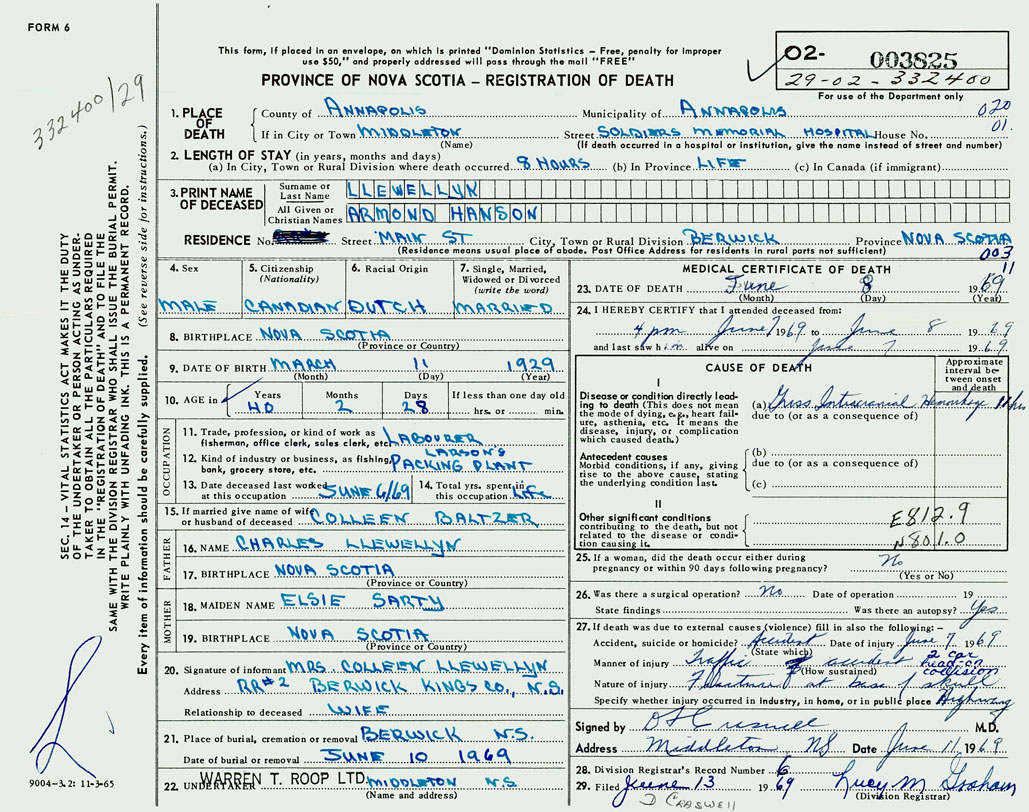 FORM 6
This form, if placed in an envelope, on which is printed "Dominion Statistics – Free, penalty for improper
use $50," and properly addressed will pass through the mail "FREE"
PROVINCE OF NOVA SCOTIA – REGISTRATION OF DEATH
02- 003825
29-02-332400
For use of the Department only
332400/29
SEC. 14 – VITAL STATISTICS ACT MAKES IT THE DUTY
OF THE UNDERTAKER OR PERSON ACTING AS UNDER-
TAKER TO OBTAIN ALL THE PARTICULARS REQUIRED
IN THE "REGISTRATION OF DEATH" AND TO FILE THE
SAME WITH THE DIVISION REGISTRAR WHO SHALL ISSUE THE BURIAL PERMIT.
WRITE PLAINLY WITH UNFADING INK. THIS IS A PERMANENT RECORD.
Every item of information should be carefully supplied. (See reverse side for instructions.)
1. PLACE OF DEATH
County of ANNAPOLIS Municipality of ANNAPOLIS 020
If in City or Town MIDDLETON Street SOLDIERS MEMORIAL HOSPITAL House No. 01.
(Name) (If death occurred in a hospital or institution, give the name instead of street and number)
2. LENGTH OF STAY (in years, months and days)
(a) In City, Town or Rural Division where death occurred 8 HOURS (b) In Province LIFE (c) In Canada (if immigrant)
3. PRINT NAME OF DECEASED
Surname or Last Name LLEWELLYN
All Given or Christian Names ARMOND HANSON
RESIDENCE No. Street MAIN ST City, Town or Rural Division BERWICK Province NOVA SCOTIA
(Residence means usual place of abode. Post Office Address for residents in rural parts not sufficient) 003
11
4. Sex MALE
5. Citizenship (Nationality) CANADIAN
6. Racial Origin DUTCH
7. Single, Married, Widowed or Divorced (write the word) MARRIED
8. BIRTHPLACE NOVA SCOTIA
(Province or Country)
9. DATE OF BIRTH MARCH 11 1929
(Month) (Day) (Year)
10. AGE in Years Months Days If less than one day old
40 2 28 hrs. or min.
OCCUPATION
11. Trade, profession, or kind of work as fisherman, office clerk, sales clerk, etc. LABOURER
12. Kind of industry or business, as fishing, bank, grocery store, etc. LARSON'S PACKING PLANT
13. Date deceased last worked at this occupation JUNE 6/69
14. Total yrs. spent in this occupation Life
15. If married give name of wife or husband of deceased COLLEEN BALTZER
FATHER
16. NAME CHARLES LLEWELLYN
17. BIRTHPLACE NOVA SCOTIA
(Province or Country)
MOTHER
18. MAIDEN NAME ELSIE SARTY
19. BIRTHPLACE NOVA SCOTIA
(Province or Country)
20. Signature of informant MRS. COLLEEN LLEWELLYN
Address RR#2 BERWICK KINGS CO., N.S.
Relationship to deceased WIFE
21. Place of burial, cremation or removal BERWICK N.S.
Date of burial or removal JUNE 10 1969
22. UNDERTAKER WARREN T. ROOP LTD. MIDDLETON N.S.
(Name and address)
9004–3.2: 11-3-65
MEDICAL CERTIFICATE OF DEATH
23. DATE OF DEATH June 8 1969
(Month) (Day) (Year)
24. I HEREBY CERTIFY that I attended deceased from:
4 pm June 7 1969 to June 8 1969
and last saw him alive on June 7 1969.
CAUSE OF DEATH
Approximate interval between onset and death
I
Disease or condition directly leading to death (This does not mean the mode of dying, e.g., heart failure, asthenia, etc. It means the disease, injury, or complication which caused death.)
(a) Gross Intracranial Hemorrhage hrs
due to (or as a consequence of)
Antecedent causes
Morbid conditions, if any, giving rise to the above cause, stating the underlying condition last.
(b)
due to (or as a consequence of)
(c)
II
Other significant conditions contributing to the death, but not related to the disease or condition causing it.
E812.9
N801.0
25. If a woman, did the death occur either during
pregnancy or within 90 days following pregnancy? No
(Yes or No)
26. Was there a surgical operation? No Date of operation 19
State findings Was there an autopsy? Yes
27. If death was due to external causes (violence) fill in also the following:–
Accident, suicide or homicide? Accident Date of injury June 7, 1969
(State which)
Manner of injury Traffic accident 2 car head-on collision
(How sustained)
Nature of injury Fracture at base of skull
Specify whether injury occurred in industry, in home, or in public place Highway
Signed by M.D.
Address Middleton NS Date June 11 1969
28. Division Registrar's Record Number 6
29. Filed June 13 1969 Lucy M Graham
(Division Registrar)
D CRASWELL